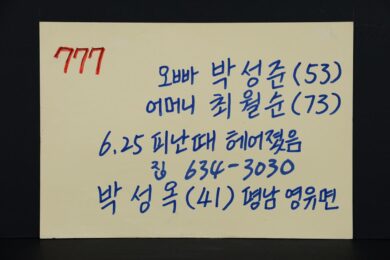 777
오빠 박성준(53)
어머니 최월순(73)
6.25 피난때 헤어졌음
집 634-3030
박성옥(41) 평남 영유면